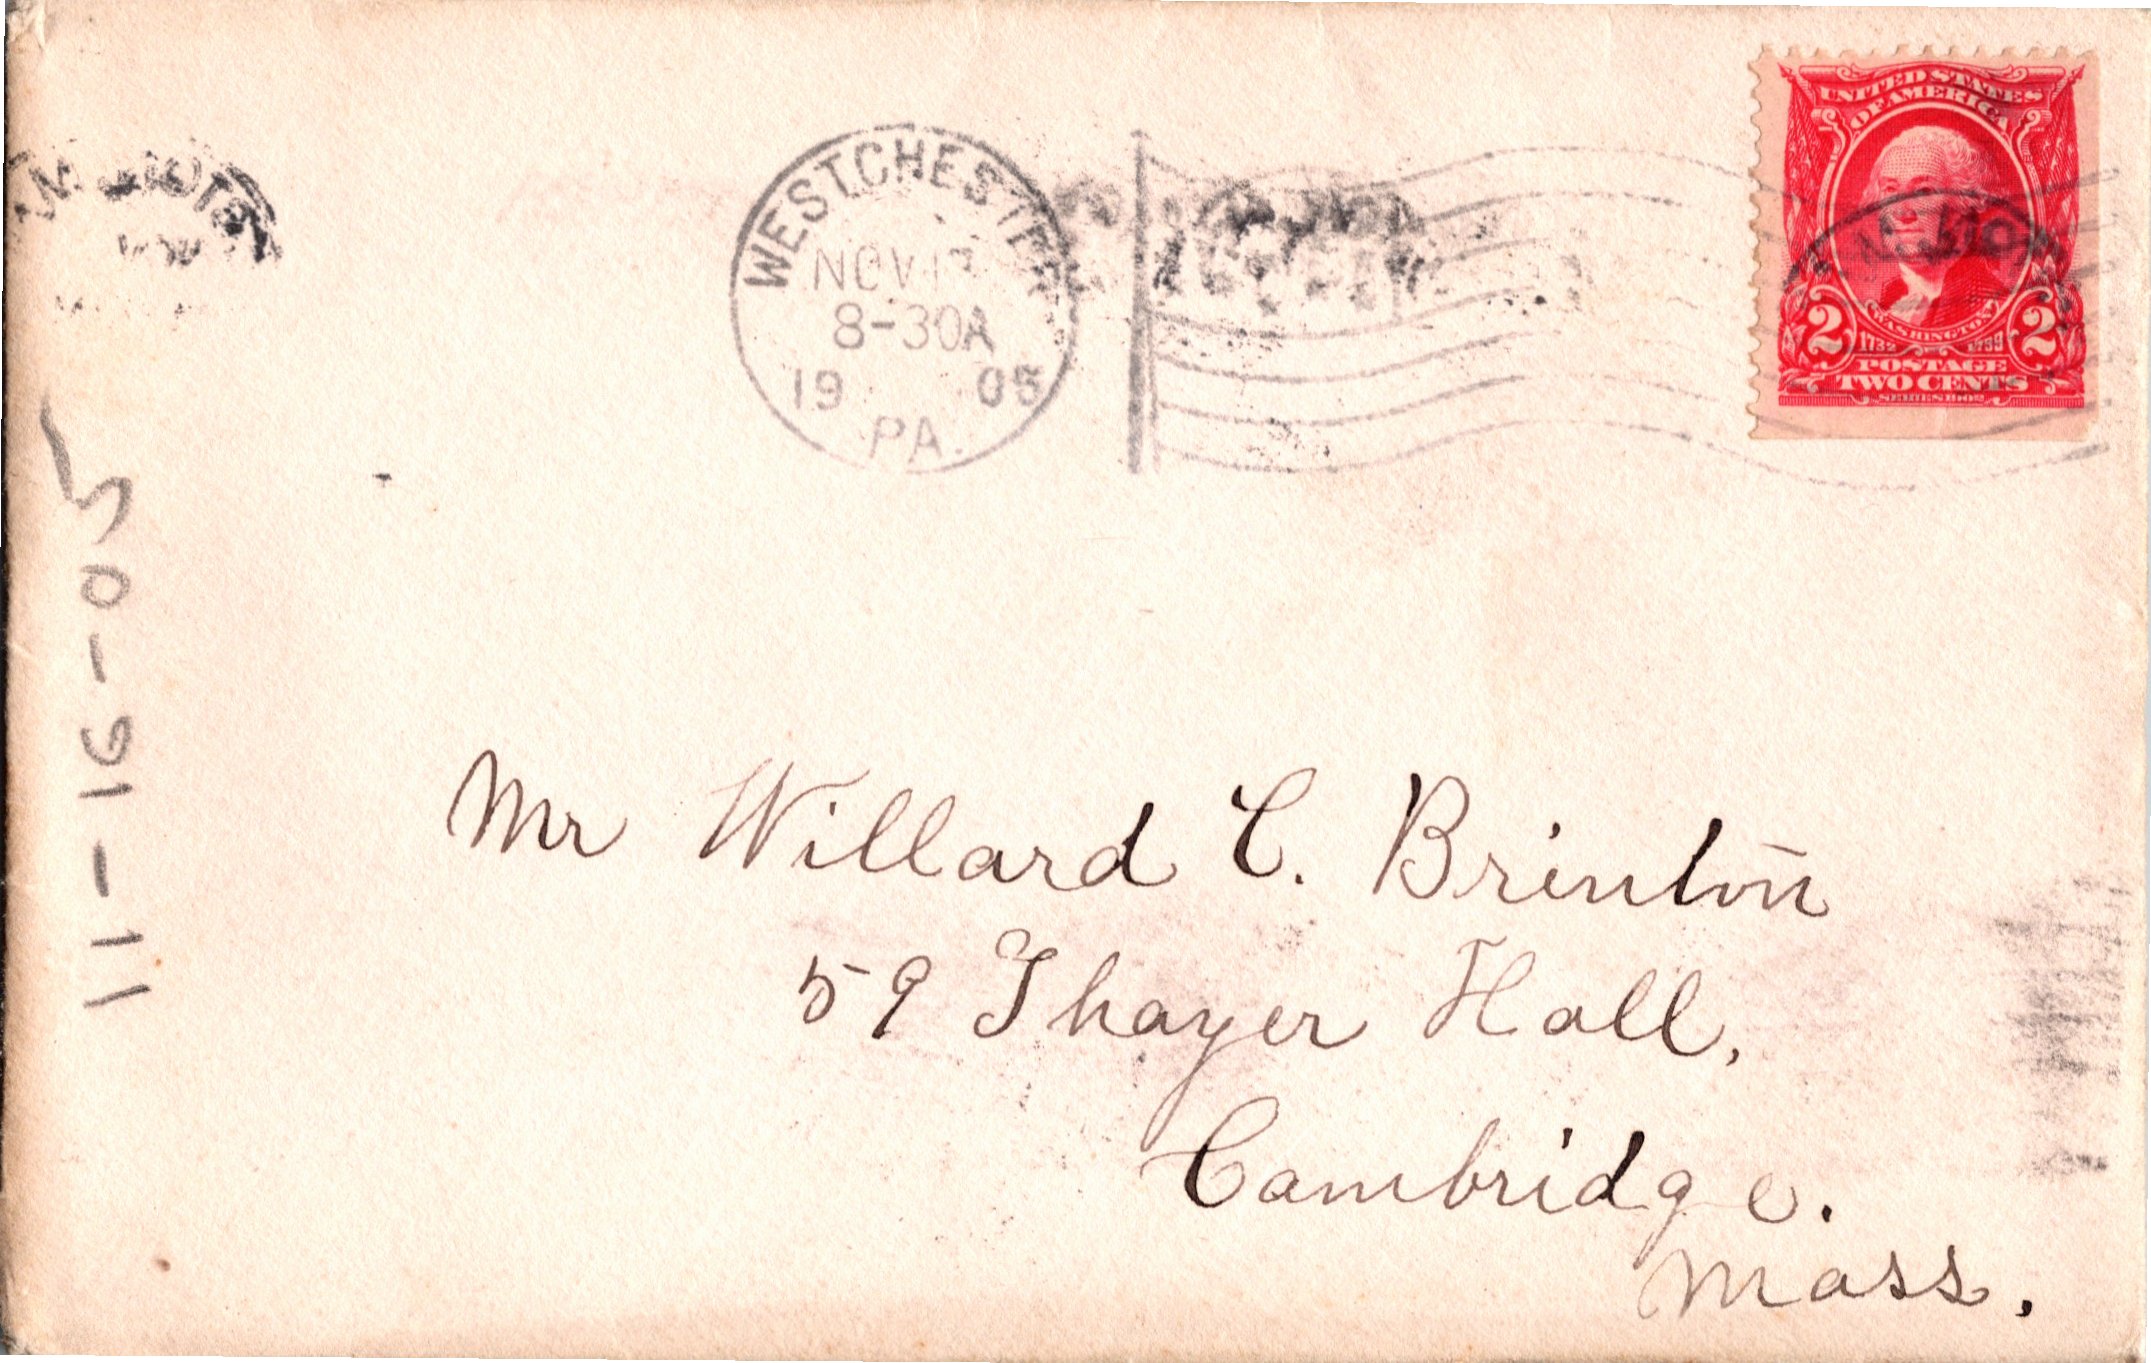 WESTCHESTER
NOV 17
8-30A
19 05
PA.
UNITED STATES
OF AMERICA
WASHINGTON
1732 1799
2 2
POSTAGE
TWO CENTS
SERIES 1902
11-16-05
Mr Willard C. Brinton
59 Thayer Hall,
Cambridge.
Mass.